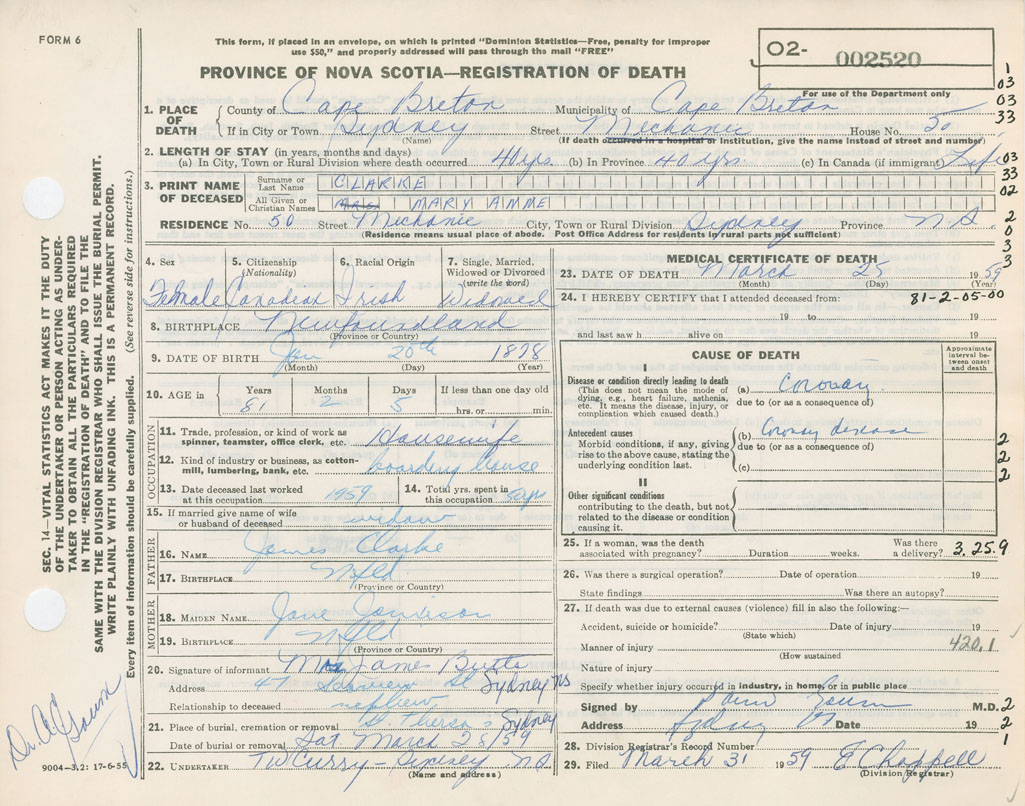 FORM 6
This form, if placed in an envelope, on which is printed "Dominion Statistics—Free, penalty for improper
use $50," and properly addressed will pass through the mail "FREE"
PROVINCE OF NOVA SCOTIA—REGISTRATION OF DEATH
O2- 002520
For use of the Department only
1
03
03
33
03
33
02
2
0
3
3
SEC. 14—VITAL STATISTICS ACT MAKES IT THE DUTY
OF THE UNDERTAKER OR PERSON ACTING AS UNDER-
TAKER TO OBTAIN ALL THE PARTICULARS REQUIRED
IN THE "REGISTRATION OF DEATH" AND TO FILE THE
SAME WITH THE DIVISION REGISTRAR WHO SHALL ISSUE THE BURIAL PERMIT.
WRITE PLAINLY WITH UNFADING INK. THIS IS A PERMANENT RECORD.
Every item of information should be carefully supplied. (See reverse side for instructions.)
1. PLACE OF DEATH
County of Cape Breton Municipality of Cape Breton
If in City or Town Sydney Street Mechanic House No. 50
(Name) (If death occurred in a hospital or Institution, give the name instead of street and number)
2. LENGTH OF STAY (in years, months and days)
(a) In City, Town or Rural Division where death occurred 40 yrs. (b) In Province 40 yrs. (c) In Canada (if immigrant) Life
3. PRINT NAME OF DECEASED
Surname or Last Name CLARKE
All Given or Christian Names MRS. MARY ANNE
RESIDENCE No. 50 Street Mechanic City, Town or Rural Division Sydney Province N.S.
(Residence means usual place of abode. Post Office Address for residents in rural parts not sufficient)
4. Sex 5. Citizenship (Nationality) 6. Racial Origin 7. Single, Married, Widowed or Divorced (write the word)
Female Canadian Irish Widowed
8. BIRTHPLACE Newfoundland
(Province or Country)
9. DATE OF BIRTH Jan 20th 1878
(Month) (Day) (Year)
10. AGE in Years Months Days If less than one day old
81 2 5 hrs. or min.
OCCUPATION
11. Trade, profession, or kind of work as
spinner, teamster, office clerk, etc. Housewife
12. Kind of industry or business, as cotton-
mill, lumbering, bank, etc. boarding house
13. Date deceased last worked
at this occupation 1959
14. Total yrs. spent in
this occupation 50 yrs
15. If married give name of wife
or husband of deceased widow
FATHER
16. NAME James Clarke
17. BIRTHPLACE Nfld
(Province or Country)
MOTHER
18. MAIDEN NAME Jane
19. BIRTHPLACE Nfld
(Province or Country)
20. Signature of informant Mr James Butts
Address 47 Seaview St Sydney NS
Relationship to deceased nephew
21. Place of burial, cremation or removal St. Theresa's Sydney
Date of burial or removal Sat March 28/59
22. UNDERTAKER TW Curry - Sydney N.S.
(Name and address)
9004—3,2: 17-6-55
MEDICAL CERTIFICATE OF DEATH
23. DATE OF DEATH March 25 1959
(Month) (Day) (Year)
24. I HEREBY CERTIFY that I attended deceased from: 81-2-05-00
19 to 19
and last saw h alive on 19
CAUSE OF DEATH
Approximate interval between onset and death
I
Disease or condition directly leading to death
(This does not mean the mode of
dying, e.g., heart failure, asthenia,
etc. It means the disease, injury, or
complication which caused death.)
(a) Coronary
due to (or as a consequence of)
Antecedent causes
Morbid conditions, if any, giving
rise to the above cause, stating the
underlying condition last.
(b) Coronary disease
due to (or as a consequence of)
(c)
2
2
2
II
Other significant conditions
contributing to the death, but not
related to the disease or condition
causing it.
25. If a woman, was the death
associated with pregnancy? Duration weeks. Was there a delivery? 3.25.9
26. Was there a surgical operation? Date of operation 19
State findings Was there an autopsy?
27. If death was due to external causes (violence) fill in also the following:—
Accident, suicide or homicide? Date of injury 19
(State which)
Manner of injury 420.1
(How sustained
Nature of injury
Specify whether injury occurred in industry, in home, or in public place
Signed by M.D. 2
Address Sydney Date 19 2
1
28. Division Registrar's Record Number
29. Filed March 31 1959 E Chappell
(Division Registrar)